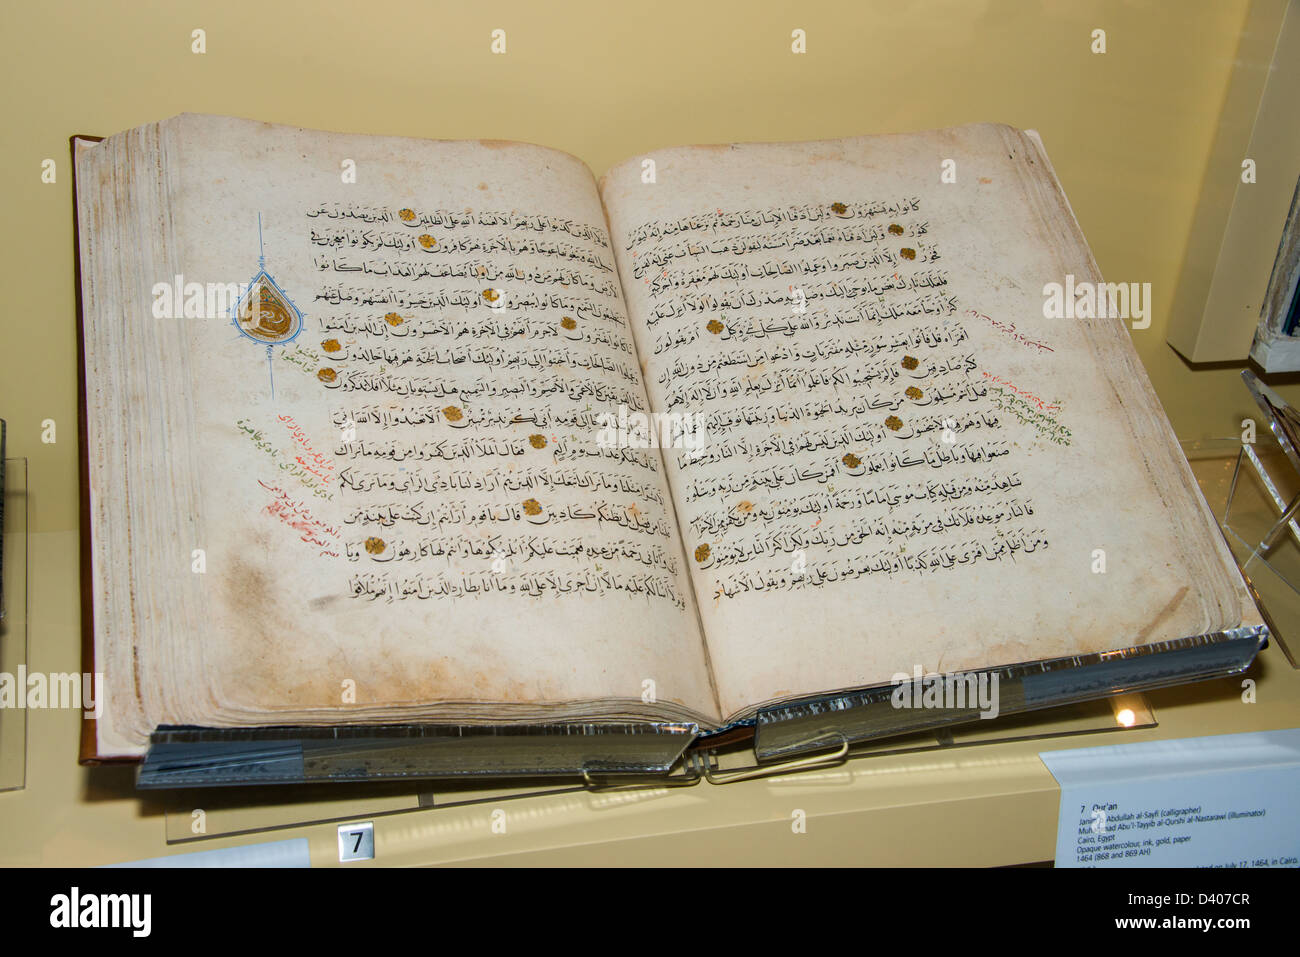 كانوا به يستهزؤن ولئن أذقنا الإنسان منا رحمة ثم نزعناها منه إنه ليؤس
كفور ولئن أذقناه نعماء بعد ضراء مسته ليقولن ذهب السيئات عني إنه لفرح
فخور إلا الذين صبروا وعملوا الصالحات أولئك لهم مغفرة وأجر كبير
فلعلك تارك بعض ما يوحى إليك وضائق به صدرك أن يقولوا لولا أنزل عليه
كنز أو جاء معه ملك إنما أنت نذير والله على كل شيء وكيل أم يقولون
افتراه قل فأتوا بعشر سور مثله مفتريات وادعوا من استطعتم من دون الله إن
كنتم صادقين فإلم يستجيبوا لكم فاعلموا أنما أنزل بعلم الله وأن لا إله إلا هو
فهل أنتم مسلمون من كان يريد الحيوة الدنيا وزينتها نوف إليهم أعمالهم
فيها وهم فيها لا يبخسون أولئك الذين ليس لهم في الآخرة إلا النار وحبط ما
صنعوا فيها وباطل ما كانوا يعملون أفمن كان على بينة من ربه ويتلوه
شاهد منه ومن قبله كتاب موسى إماما ورحمة أولئك يؤمنون به ومن يكفر به من الأحزاب
فالنار موعده فلا تك في مرية منه إنه الحق من ربك ولكن أكثر الناس لا يؤمنون
ومن أظلم ممن افترى على الله كذبا أولئك يعرضون على ربهم ويقول الأشهاد
هؤلاء الذين كذبوا على ربهم ألا لعنة الله على الظالمين الذين يصدون عن
سبيل الله ويبغونها عوجا وهم بالآخرة هم كافرون أولئك لم يكونوا معجزين في
الأرض وما كان لهم من دون الله من أولياء يضاعف لهم العذاب ما كانوا
يستطيعون السمع وما كانوا يبصرون أولئك الذين خسروا أنفسهم وضل عنهم
ما كانوا يفترون لا جرم أنهم في الآخرة هم الأخسرون إن الذين آمنوا
وعملوا الصالحات وأخبتوا إلى ربهم أولئك أصحاب الجنة هم فيها خالدون
مثل الفريقين كالأعمى والأصم والبصير والسميع هل يستويان مثلا أفلا تذكرون
ولقد أرسلنا نوحا إلى قومه إني لكم نذير مبين ألا تعبدوا إلا الله إني
أخاف عليكم عذاب يوم أليم فقال الملأ الذين كفروا من قومه ما نراك
إلا بشرا مثلنا وما نراك اتبعك إلا الذين هم أراذلنا بادي الرأي وما نرى لكم
علينا من فضل بل نظنكم كاذبين قال يا قوم أرأيتم إن كنت على بينة من
ربي وآتاني رحمة من عنده فعميت عليكم أنلزمكموها وأنتم لها كارهون ويا
قوم لا أسألكم عليه مالا إن أجري إلا على الله وما أنا بطارد الذين آمنوا إنهم ملاقوا
7
7 Qur'an
Abdullah al-Sayfi (calligrapher)
Abu'l-Tayyib al-Qurshi al-Nastarawi (illuminator)
Cairo, Egypt
Opaque watercolour, ink, gold, paper
1464 (868 and 869 AH)
on July 17, 1464, in Cairo.
alamy
Image ID: D407CR
www.alamy.com